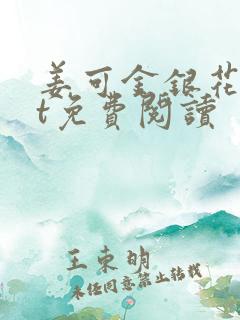 姜可金銀花
t免費閱讀
王東明
未经同意禁止转载